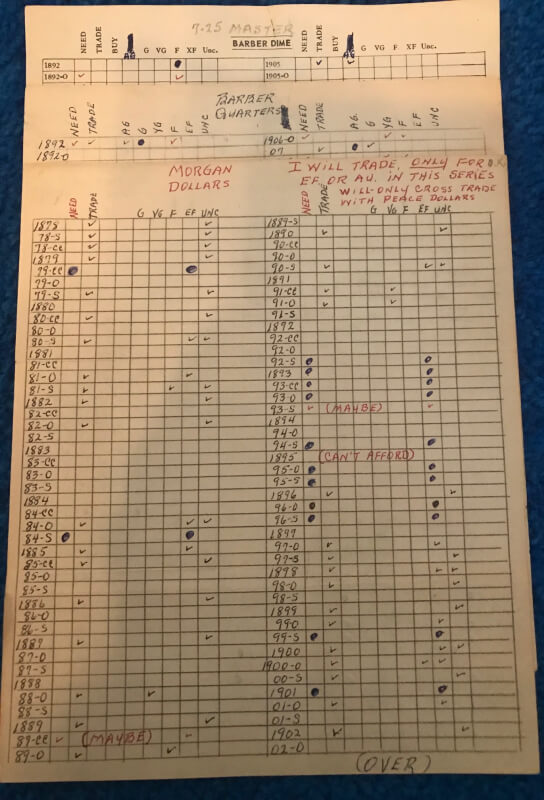 7-25 MASTER
BARBER DIME
NEED TRADE BUY AG G VG F XF Unc. NEED TRADE BUY AG G VG F XF Unc.
1892 1905
1892-O 1905-O
BARBER
QUARTERS
NEED TRADE AG G VG F EF UNC NEED TRADE AG G VG F EF UNC
1892 1906-O
1892-O 07
MORGAN
DOLLARS
I WILL TRADE, ONLY FOR
EF OR AU. IN THIS SERIES
WILL-ONLY CROSS TRADE
WITH PEACE DOLLARS
NEED TRADE G VG F EF UNC NEED TRADE G VG F EF UNC
1878 1889-S
78-S 1890
78-CC 90-CC
1879 90-O
79-CC 90-S
79-O 1891
79-S 91-CC
1880 91-O
80-CC 91-S
80-O 1892
80-S 92-CC
1881 92-O
81-CC 92-S
81-O 1893
81-S 93-CC
1882 93-O
82-CC 93-S (MAYBE)
82-O 1894
82-S 94-O
1883 94-S
83-CC 1895 (CAN'T AFFORD)
83-O 95-O
83-S 95-S
1884 1896
84-CC 96-O
84-O 96-S
84-S 1897
1885 97-O
85-CC 97-S
85-O 1898
85-S 98-O
1886 98-S
86-O 1899
86-S 99O
1887 99-S
87-O 1900
87-S 1900-O
1888 00-S
88-O 1901
88-S 01-O
1889 01-S
89-CC (MAYBE) 1902
89-O 02-O
(OVER)